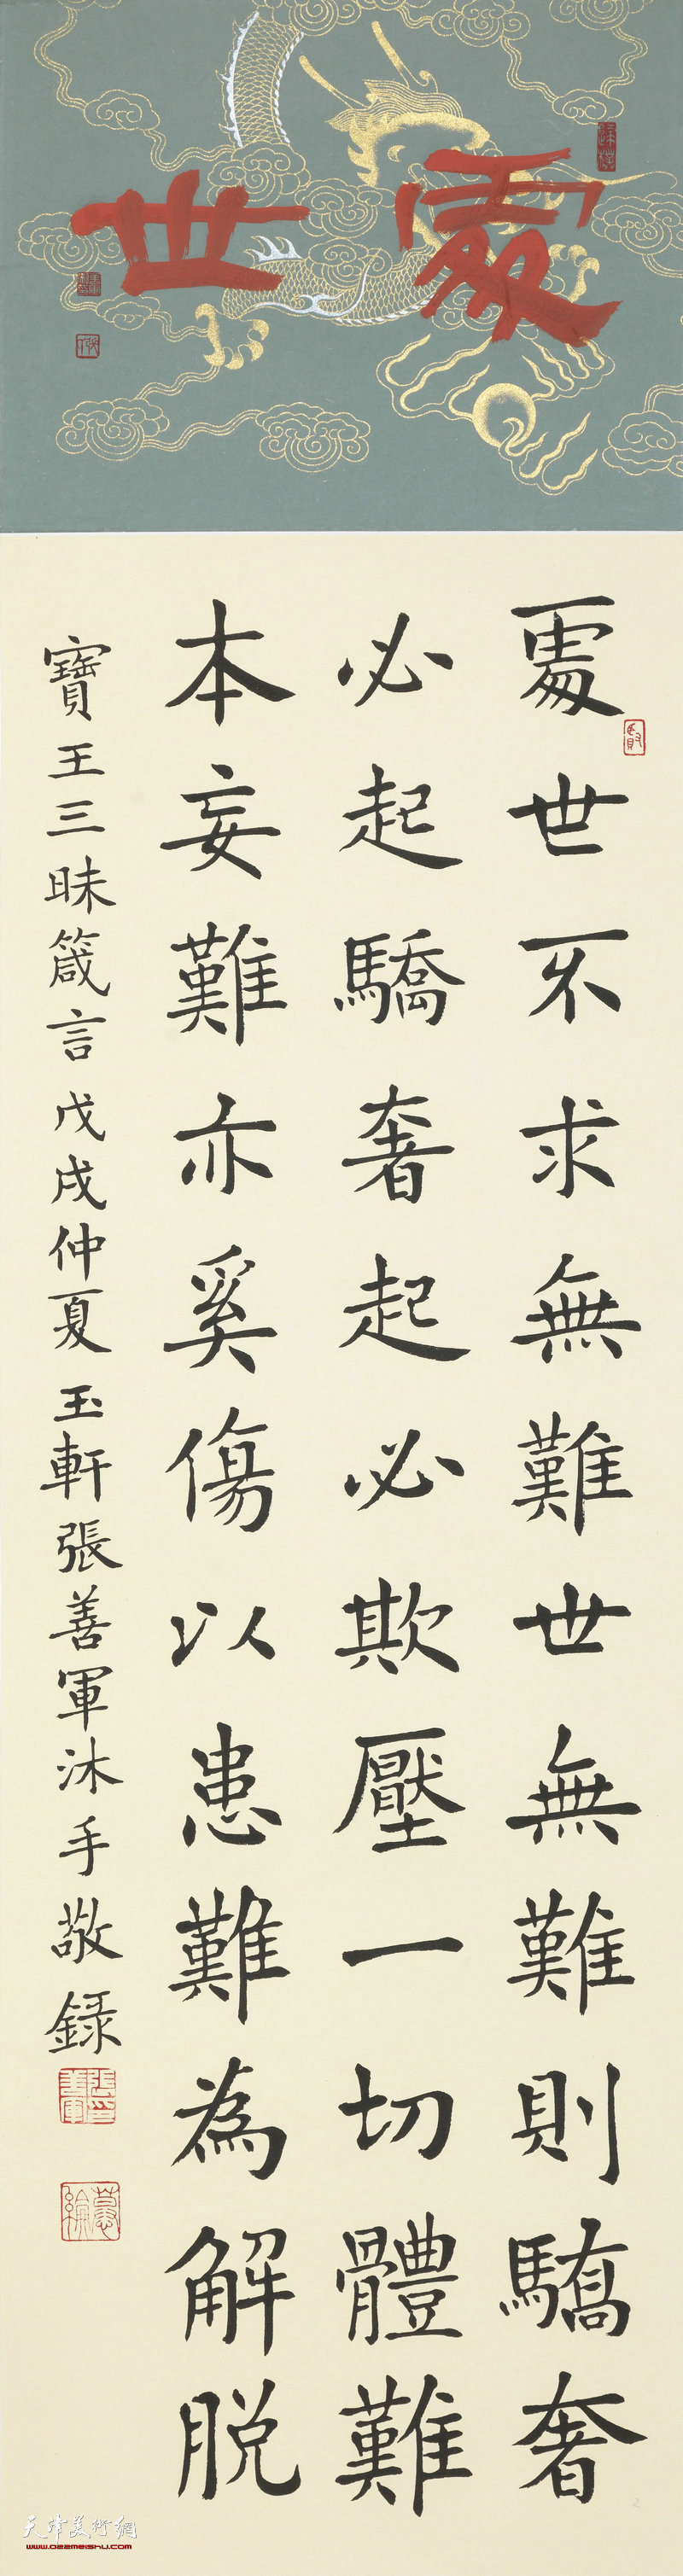 處世
處世不求無難世無難則驕奢
必起驕奢起必欺壓一切體難
本妄難亦奚傷以患難為解脱
寶王三昧箴言戊戌仲夏玉軒張善軍沐手敬錄
天津美術網